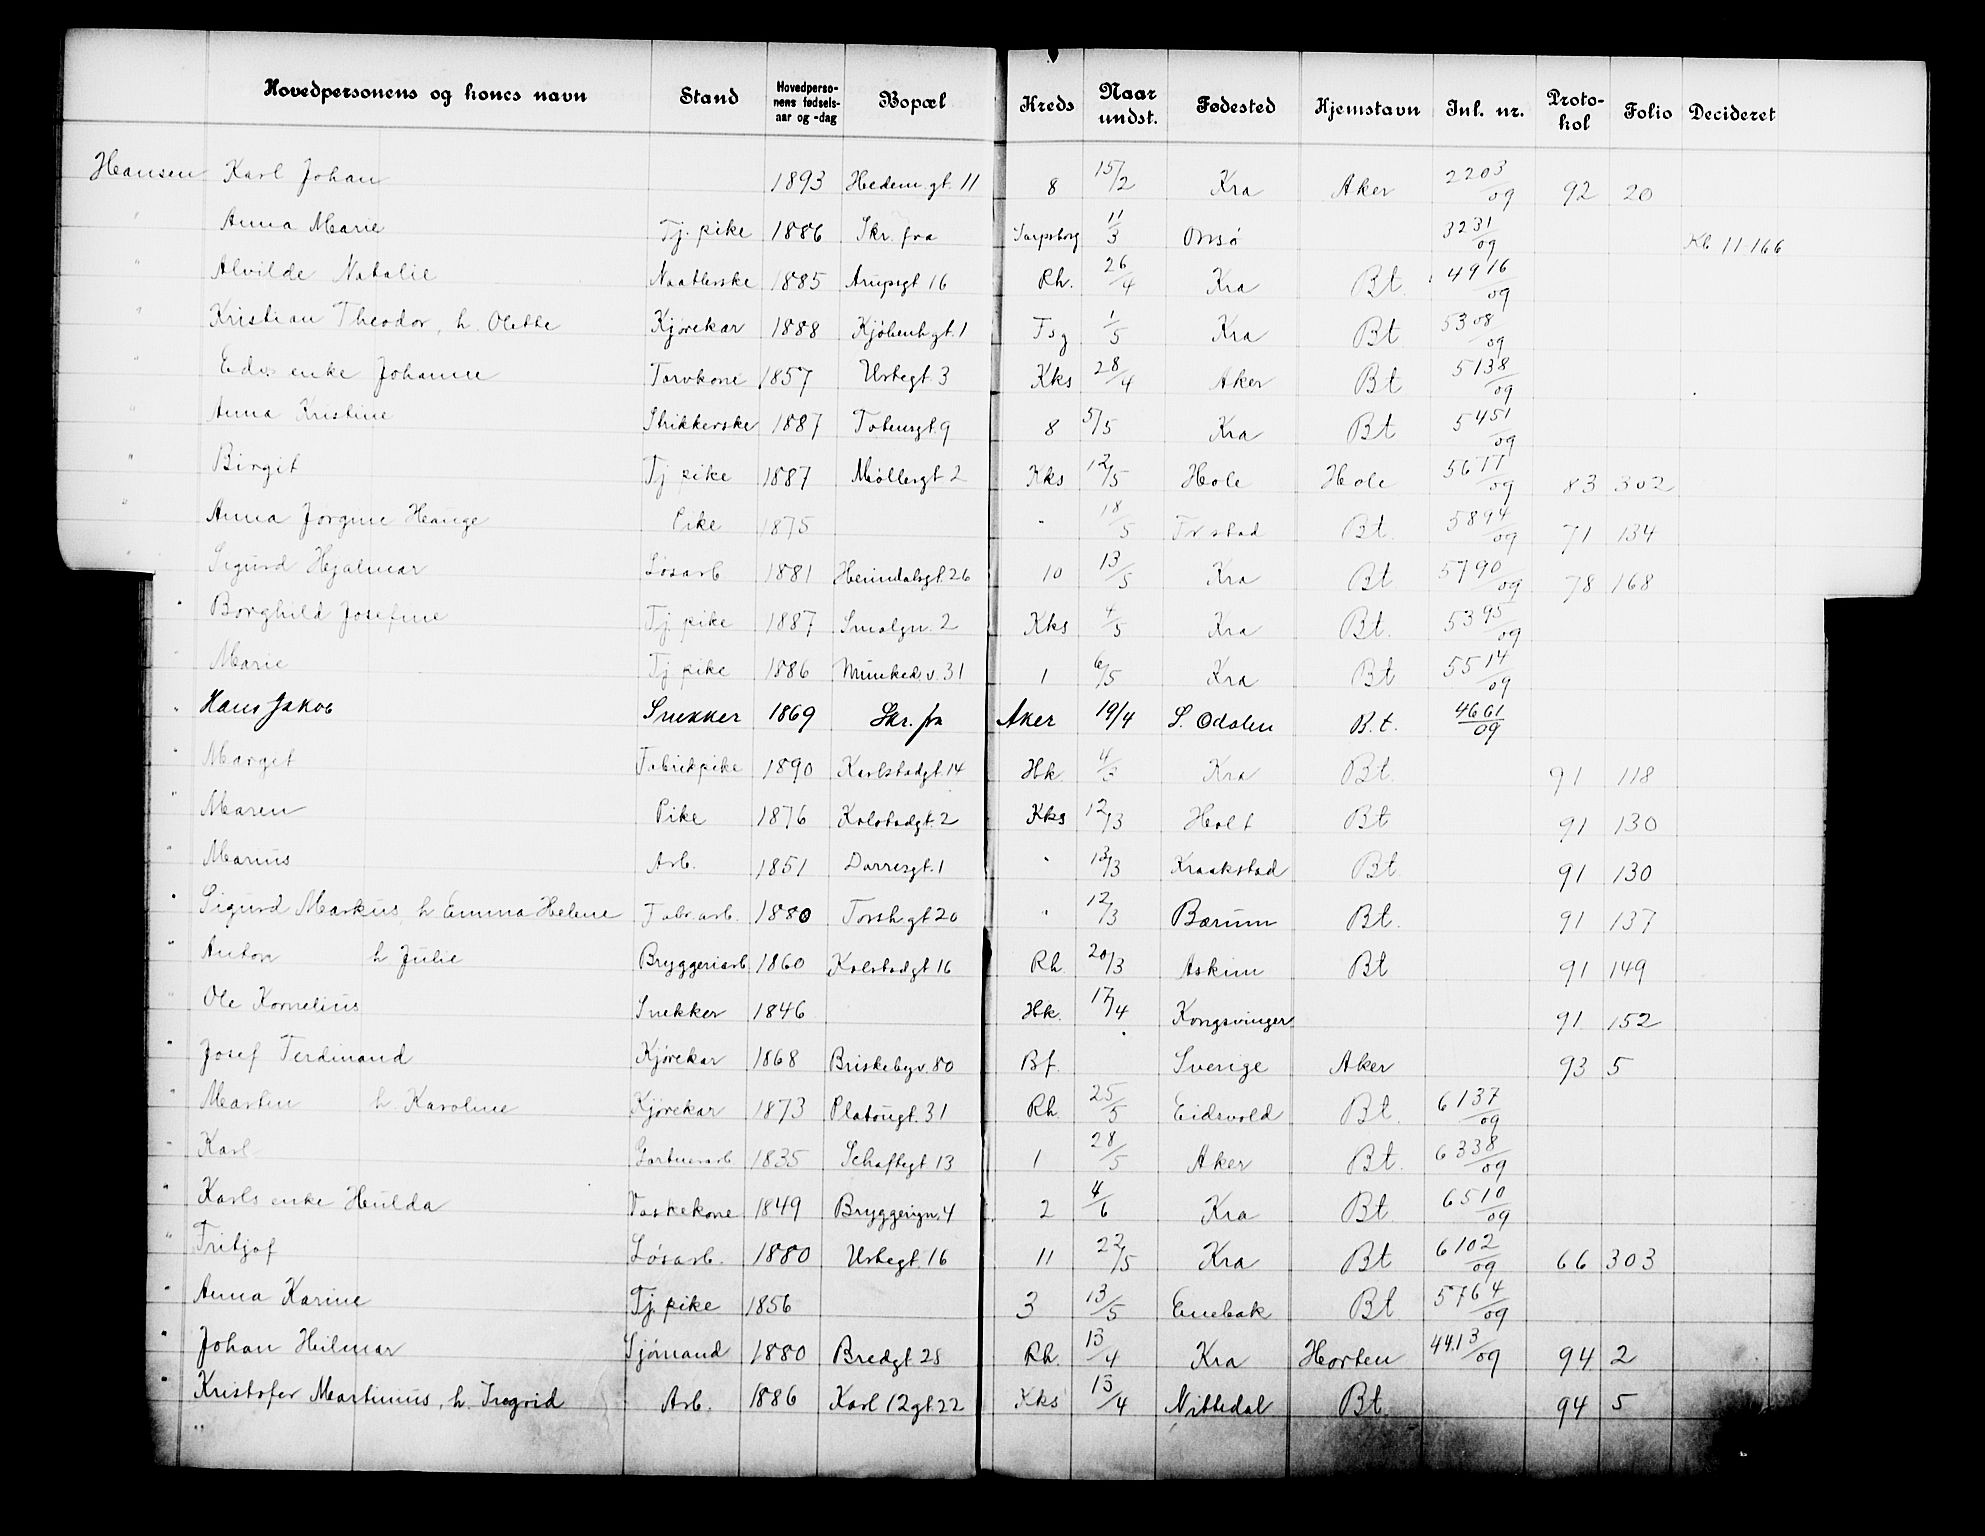 Hovedpersonens og kones navn Stand Hovedpersonens fødselsaar og -dag Bopæl Kreds Naar undst. Fødested Hjemstavn Inl. nr. Protokol Folio Decideret
Hansen Karl Johan 1893 Hedem.gt. 11 8 15/2 Kra Aker 2203/09 92 20
" Anna Marie Tj. pike 1886 Skr. fra Sarpsborg 11/3 Onsø 3231/09 Kb 11.166
" Alvilde Natalie Naatlerske 1885 Arupsgt 16 Rh. 26/4 Kra Bt. 4916/09
" Kristian Theodor, h. Olette Kjørekar 1888 Kjøbenh.gt. 1 Tsg 1/5 Kra Bt 5308/09
" Edvs enke Johanne Torvkone 1857 Urtegt. 3 Kks 28/4 Aker Bt 5138/09
" Anna Kristine Strikkerske 1887 Totensgt. 9 8 5/5 Kra Bt 5451/09
" Birgit Tj pike 1887 Møllergt 2 Kks 12/5 Hole Hole 5677/09 83 302
" Anna Jørgine Hange Pike 1875 " 18/5 Bt. 5894/09 71 134
" Sigurd Hjalmar Løsarb 1881 Heimdalsgt. 26 10 13/5 Kra Bt 5790/09 78 168
" Borghild Josefine Tj pike 1887 Smalgn. 2 Kks 4/5 Kra Bt. 5395/09
" Marie Tj pike 1886 Munked.v. 31 1 6/5 Kra Bt 5514/09
" Hans Jakob Snekker 1869 Skr. fra Aker 19/4 S. Odalen B.t. 4661/09
" Marget Fabrikpike 1890 Karlstadgt. 14 Hk. 4/3 Kra Bt. 91 118
" Maren Pike 1876 Kolstadgt. 2 Kks 12/3 Holt Bt 91 130
" Marius Arb. 1851 Darresgt. 1 " 13/3 Kraakstad Bt. 91 130
" Sigurd Markus, h Emma Helene Fabr.arb. 1880 Torsh.gt 20 " 12/3 Bærum Bt. 91 137
" Anton h Julie Bryggeriarb 1860 Kolstadgt 16 Rh. 20/3 Askim Bt 91 149
" Ole Kornelius Snekker 1846 Hk. 17/4 Kongsvinger 91 152
" Josef Ferdinand Kjørekar 1868 Briskebyv. 80 Bf. Sverige Aker 93 5
" Martin h. Karoline Kjørekar 1873 Platougt. 31 Rh. 25/5 Eidsvold Bt. 6137/09
" Karl Gartnerarb 1835 Schaftegt 13 1 28/5 Aker Bt. 6338/09
" Karls enke Hulda Vaskekone 1849 Bryggerign. 4 2 4/6 Kra Bt 6510/09
" Fritjof Løsarb. 1880 Urtegt. 16 11 22/5 Kra Bt 6102/09 66 303
" Anna Karine Tj. pike 1856 3 13/5 Enebak Bt 5764/09
" Johan Hilmar Sjømand 1880 Bredgt. 25 Rh. 13/4 Kra Horten 4413/09 94 2
" Kristofer Martinius, h. Ingrid Arb. 1886 Karl 12 gt. 22 Kks 13/4 Nittedal Bt. 94 5
"